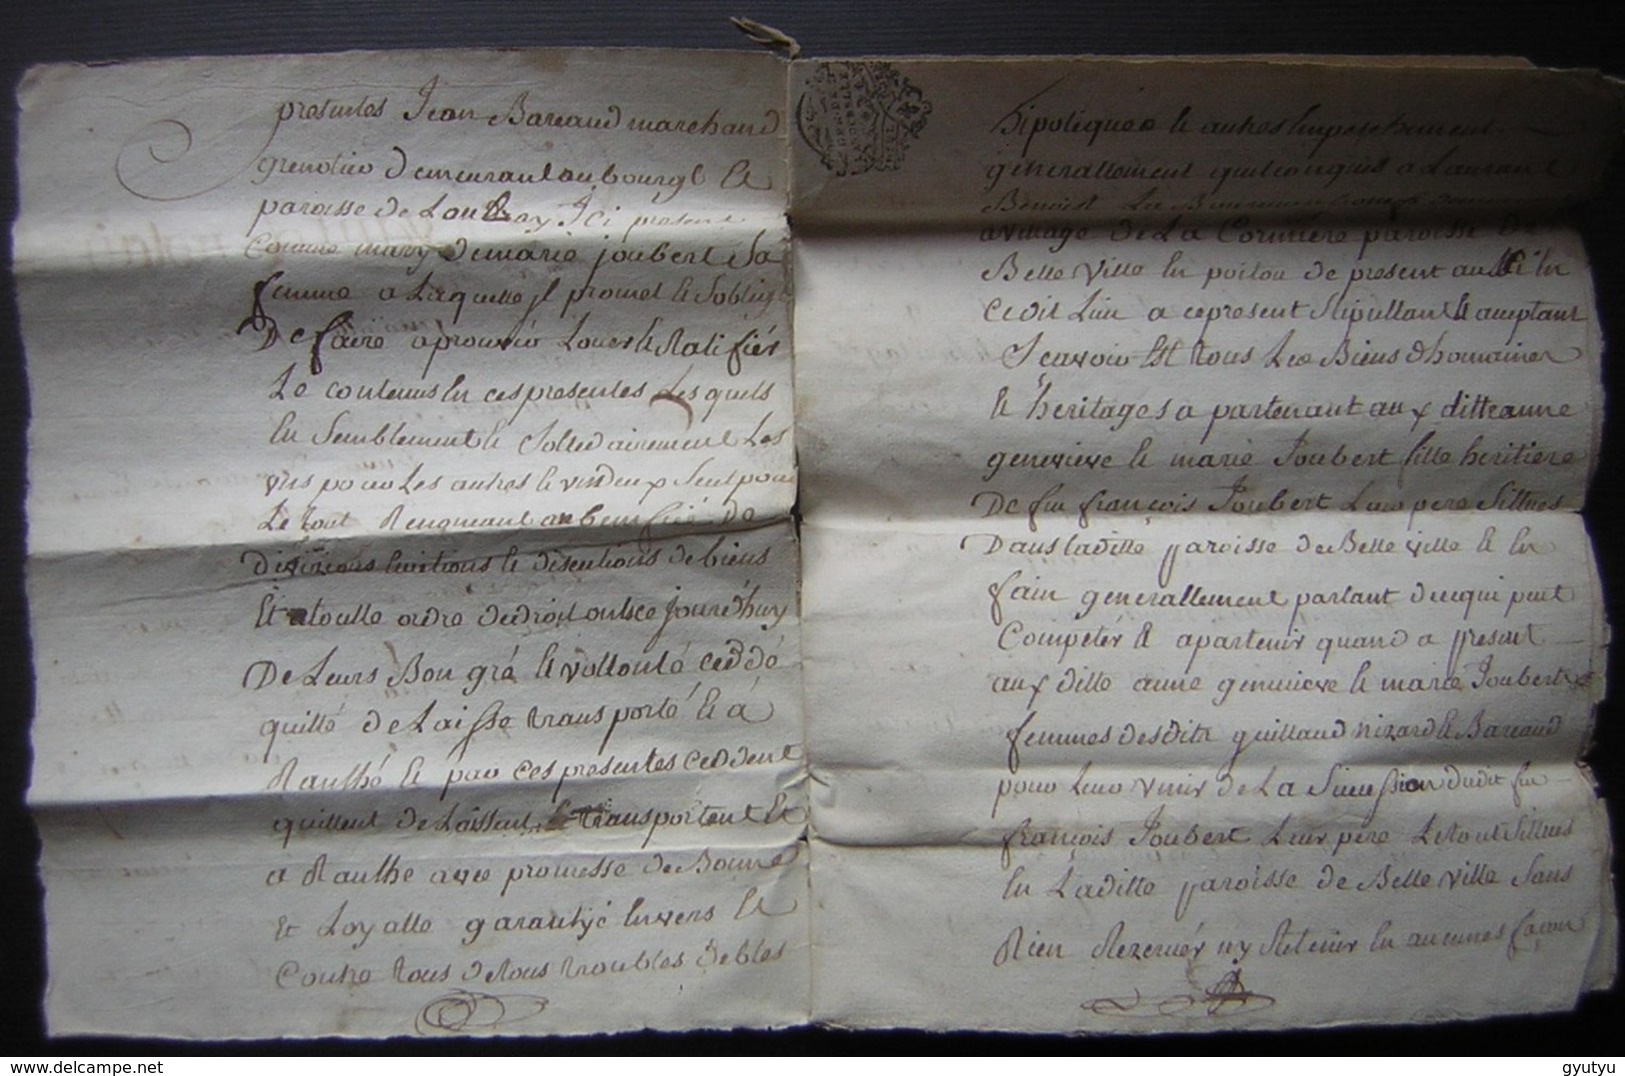 presentes Jean Bareaud marchand
grenetier demeurant au bourgt et
paroisse de Ici present
comme mary de marie joubert sa
femme a Laquelle jl promet et soblige
De faire aprouvér Louer et Ratifiér
Le contenus En ces presentes Les quels
En semblement et solledairement Les
uns pour Les autres et un deux seul pour
Le tout Renonceant au benefice de
divizions et disentions de biens
Et atoutte ordre de droit ont ce jourd'huy
De Leurs Bon gré et vollonté ceddé
quitté deLaisse transporté et a
Ranthé et par ces presentes ceddent
quittent deLaissent et transportent et
a Ranthe avec promesse de Bonne
et Loyalle garantye Envers et
Contre tous de tous troubles debtes
hipoteques et autres Empeschement
generallement quelconques a Laurant
Benoist
avillage de La Corniére paroisse de
Belle ville En poitou de present En
cedit Lieu a ce present stipullant et aceptant
Scavoir Est tous Les Biens dhommaines
et heritages a partenant aux ditte anne
genevieve et marie Joubert fille heritiere
De feu françois Joubert Leur pere sittués
Dans laditte paroisse de Belle ville et En
fain generallement partant de ce qui peut
Compétér et apartenir quand a present
aux ditte anne genevieve et marie Joubert
femmes desdits guillaud nizard et Bareaud
pour Leur venir de La Sucession dudit feu
françois Joubert Leur pére Le tout sittués
En Laditte paroisse de Belle ville Sans
Rien Rezervér n'y Retenir En aucunes façon
gyutyu
delcampe.net